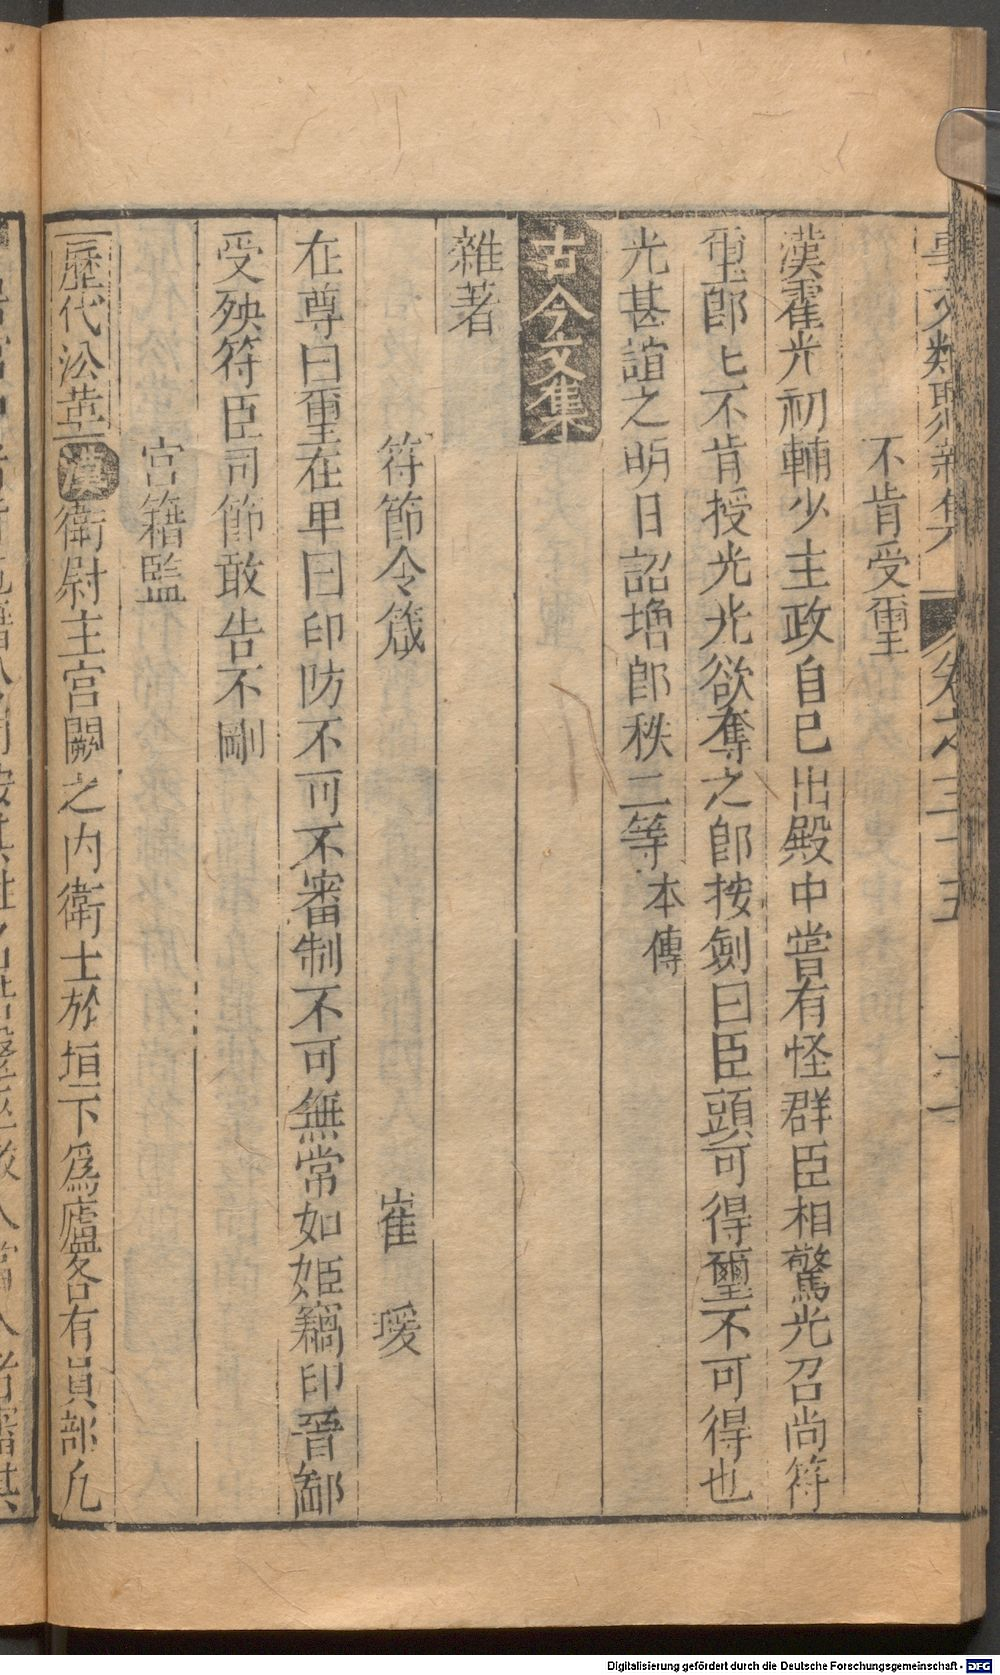 事文類聚新集　卷之三十五
不肯受璽
漢霍光初輔少主政自已出殿中嘗有怪群臣相驚光召尚符
璽郎〻不肯授光光欲奪之郎按劍曰臣頭可得璽不可得也
光甚誼之明日詔增郎秩二等本傳
古今文集
雜著
符節令箴　崔　瑗
在尊曰璽在卑曰印防不可不審制不可無常如姬竊印晉鄙
受殃符臣司節敢告不剛
宮籍監
歷代沿革漢衛尉主宮闕之內衛士於垣下爲廬各有員部凡
Digitalisierung gefördert durch die Deutsche Forschungsgemeinschaft - DFG